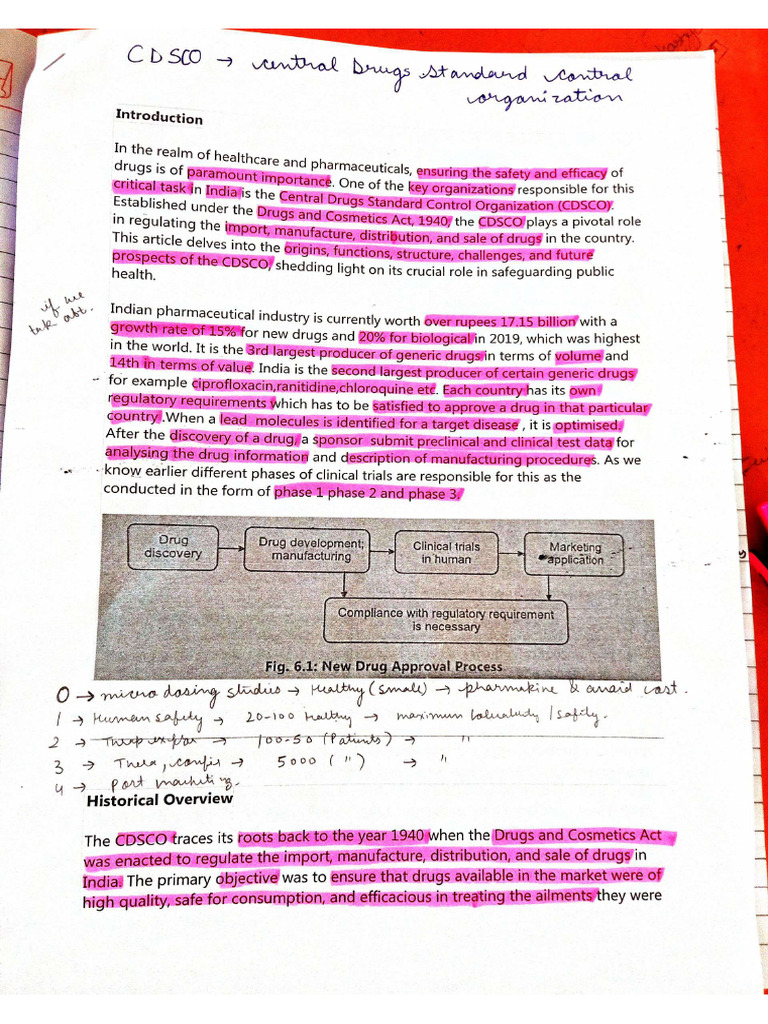 CDSCO → Central Drugs Standard Control
organization
Introduction
In the realm of healthcare and pharmaceuticals, ensuring the safety and efficacy of
drugs is of paramount importance. One of the key organizations responsible for this
critical task in India is the Central Drugs Standard Control Organization (CDSCO).
Established under the Drugs and Cosmetics Act, 1940, the CDSCO plays a pivotal role
in regulating the import, manufacture, distribution, and sale of drugs in the country.
This article delves into the origins, functions, structure, challenges, and future
prospects of the CDSCO, shedding light on its crucial role in safeguarding public
health.
if we
tak abt.
Indian pharmaceutical industry is currently worth over rupees 17.15 billion with a
growth rate of 15% for new drugs and 20% for biological in 2019, which was highest
in the world. It is the 3rd largest producer of generic drugs in terms of volume and
14th in terms of value. India is the second largest producer of certain generic drugs
for example ciprofloxacin,ranitidine,chloroquine etc. Each country has its own
regulatory requirements which has to be satisfied to approve a drug in that particular
country .When a lead molecules is identified for a target disease , it is optimised.
After the discovery of a drug, a sponsor submit preclinical and clinical test data for
analysing the drug information and description of manufacturing procedures. As we
know earlier different phases of clinical trials are responsible for this as the
conducted in the form of phase 1 phase 2 and phase 3.
Drug discovery
Drug development; manufacturing
Clinical trials in human
Marketing application
Compliance with regulatory requirement
is necessary
Fig. 6.1: New Drug Approval Process
0 → micro dosing studies → Healthy (small) → pharmakine &
1 → Human safety → 20-100 healthy → maximum /safity.
2 → → 100-50 (Patients) → "
3 → Thera, confir → 5000 (") → "
4 → Port marketing.
Historical Overview
The CDSCO traces its roots back to the year 1940 when the Drugs and Cosmetics Act
was enacted to regulate the import, manufacture, distribution, and sale of drugs in
India. The primary objective was to ensure that drugs available in the market were of
high quality, safe for consumption, and efficacious in treating the ailments they were